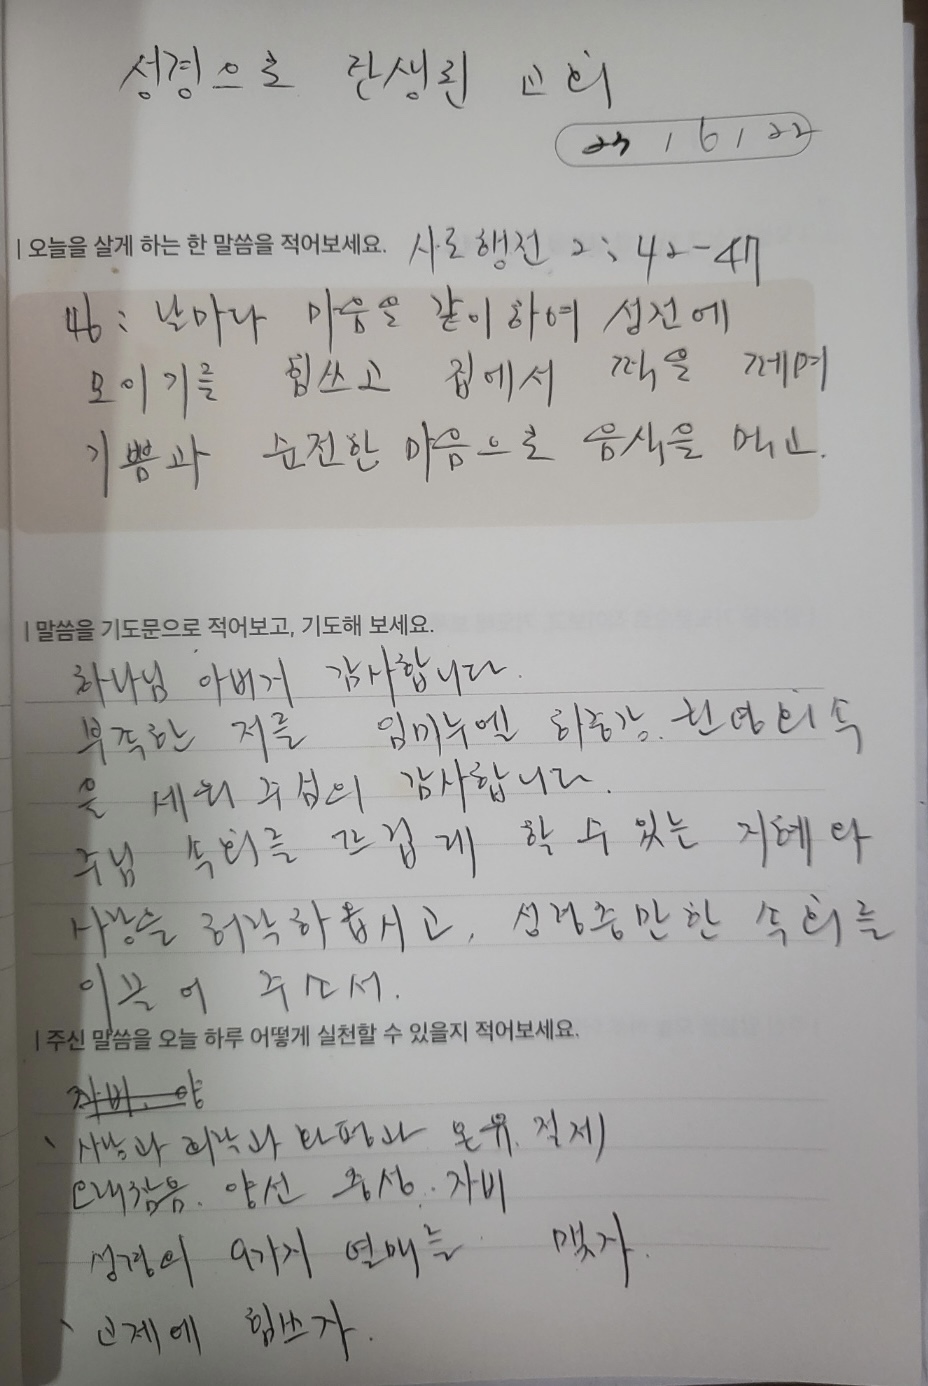 성경으로 탄생된 교회
23 / 6 / 22
| 오늘을 살게 하는 한 말씀을 적어보세요. 사도행전 2 : 42-47
46 : 날마다 마음을 같이하여 성전에
모이기를 힘쓰고 집에서 떡을 떼며
기쁨과 순전한 마음으로 음식을 먹고.
| 말씀을 기도문으로 적어보고, 기도해 보세요.
하나님 아버지 감사합니다.
부족한 저를 임마누엘 하中강. 속
을 세워 감사합니다.
주님 속회를 뜨겁게 할 수 있는 지혜와
사랑을 허락하옵시고, 성경충만한 속회를
이끌어 주소서.
| 주신 말씀을 오늘 하루 어떻게 실천할 수 있을지 적어보세요.
자비. 양
사랑과 희락과 화평과 온유. 절제
오래참음. 양선 충성. 자비
성경의 9가지 열매를 맺자.
교제에 힘쓰자.